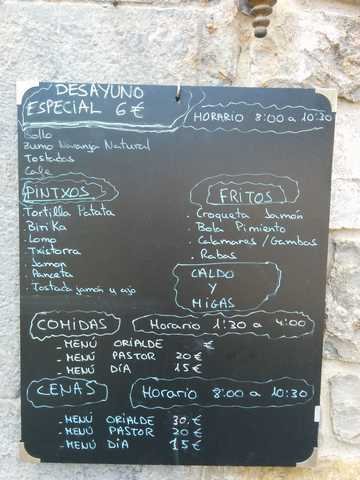 DESAYUNO
ESPECIAL 6€
HORARIO 8:00 a 10:30
Bollo
Zumo Naranja Natural
Tostadas
Cafe
PINTXOS
Tortilla Patata
BiriKa
. Lomo
. Txistorra
. Jamon
. Panceta
. Tostada jamón y ajo
FRITOS
. Croqueta Jamón
. Bola Pimiento
. Calamares/Gambas
. Rabas
CALDO
Y
MIGAS
COMIDAS
Horario 1:30 a 4:00
- MENÚ ORIALDE €
- MENÚ PASTOR 20€
- MENÚ DÍA 15€
CENAS
Horario 8:00 a 10:30
- MENÚ ORIALDE 30.€
- MENÚ PASTOR 20 €
- MENÚ DIA 15€